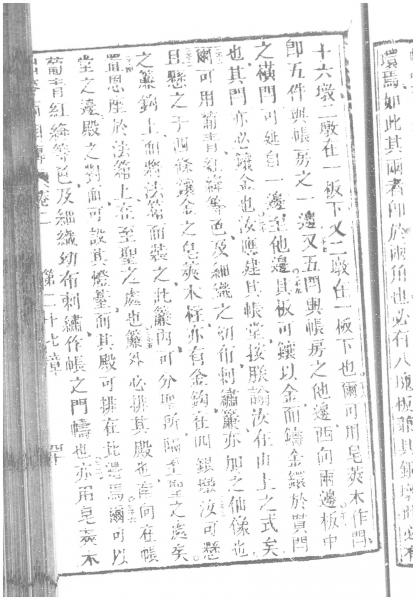 環焉如此其兩者即於兩角也必有八塊板兼其銀
十六墩二墩在一板下又二墩在一板下也爾可用皂莢木作閂
即五件與帳房之一邊又五閂與帳房之他邊西向兩邊板中
之橫閂可延自一邊至他邊其板可鑲以金而鑄金鐶於貫閂
也其閂亦必鑲金也汝應建其帳堂按朕諭汝在山上之式矣
爾可用葡青紅絳等色及細織之幼布刺繡簾亦加之仙像也
且懸之于四條鑲金之皂莢木柱亦有金鈎在四銀墩汝可懸
之簾鈎上而將法箱而裝之此簾內可分聖所隔至聖之處矣
置恩座於法箱上在至聖之處也簾外必排其殿也南向在帳
堂之邊殿之對面可設其燈臺而其殿可排在北邊焉爾可以
葡青紅絳等色及細織幼布刺繡作帳之門幬也亦用皂莢木
卷二 第二十七章 四十